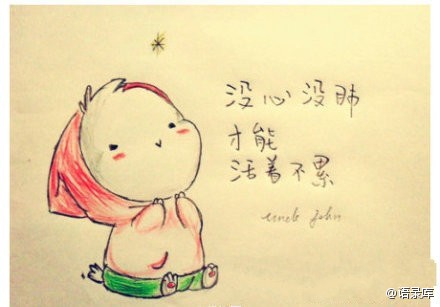 没心没肺
才能
活着不累
uncle john
@语录库